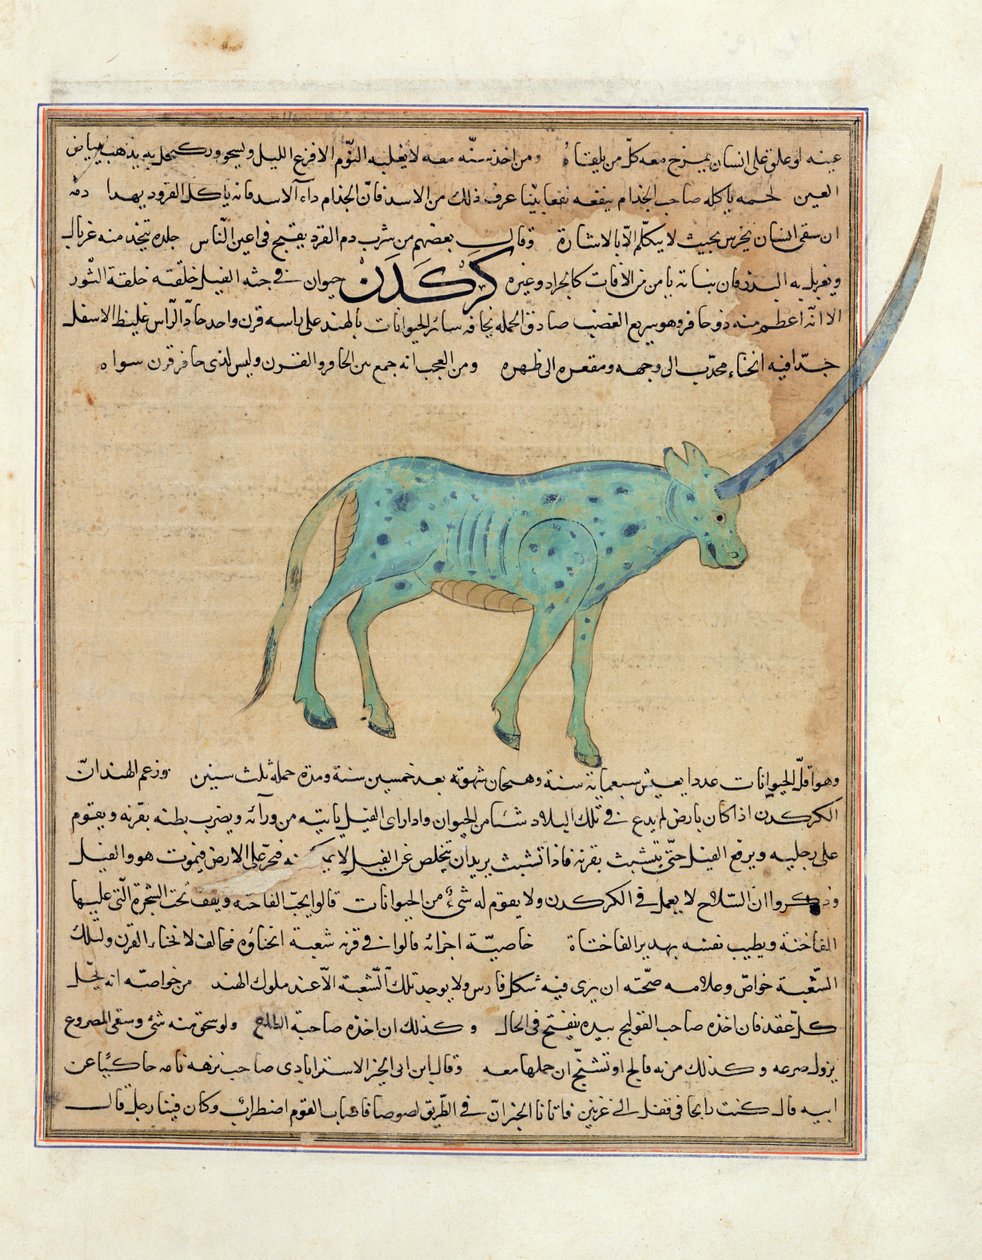 عينه او علق على انسان يمزح معه كل من يلقاه ومن اخذ سنّه معه لا يغلبه النّوم الا فزع الليل ويسحق وركه يكحل به يذهب بياض
العين لحمه ياكله صاحب الجذام ينفعه نفعا بيّنا عرف ذلك من الاسد فانّ الجذام داء الاسد فانه ياكل القرود بهذا دمه
ان سقى انسان يخرس بحيث لا يتكلّم الّا بالاشارة وقال بعضهم من شرب دم القرد يقبح فى اعين النّاس جلده يتخذ منه غربال
ويغربل به البذر فان نباته يامن من الافات كالجراد وغيره كَرْكَدَنْ حيوان فى جثه الفيل خلقته خلقة الثّور
الا انّه اعظم منه ذو حافر وهو سريع الغضب صادق الحمله يخافه سائر الحيوانات بالهند على راسه قرن واحد حادّ الرّاس غليظ الاسفل
جدّا فيه انحناء محدّب الى وجهه ومقعره الى ظهره ومن العجب انه جمع بين الحافر والقرن وليس لذى حافر قرن سواه
وهو اقلّ الحيوانات عددا يعيش سبعمائة سنة وهيجان شهوته بعد خمسين سنة ومدة حمله ثلث سنين وزعم الهند انّ
الكركدن اذا كان بارض لم يدع فى تلك البلاد شيئا من الحيوان واذا راى الفيل ياتيه من ورائه ويضرب بطنه بقرنه ويقوم
على رجليه ويرفع الفيل حتّى يتشبث بقرنه فاذا تشبث يريد ان يتخلص عن الفيل لا يمكنه فيخرّ على الارض فيموت هو والفيل
وذكروا انّ السّلاح لا يعمل فى الكركدن ولا يقوم له شئ من الحيوانات قالوا يحبّ الفاخته ويقف تحت الشجرة الّتى عليها
الفاختة ويطيب نفسه بهدير الفاختاة خاصيّة اجزائه قالوا فى قرنه شعبة انحناؤه مخالف لانحناء القرن ولتلك
الشّعبة خواصّ وعلامه صحّته ان يرى فيه شكل فارس ولا يوجد تلك الشّعبة الّا عند ملوك الهند من خواصّه انه يحلّ
كلّ عقد فان اخذه صاحب القولنج بيده ينفتح فى الحال وكذلك ان اخذه صاحبة الطلق ولو سحق منه شئ وسقى المصروع
يزول صرعه وكذلك من به فالج او تشنّج ان حملها معه وقال ابن ابى الخير الاسترابادى صاحب نزهه نامه حاكيًا عن
ابيه قال كنت ذاهبا فى قفل الى غزنين فاتانا الخبر انّ فى الطّريق لصوصا فاصاب القوم اضطراب وكان فينا رجل قال